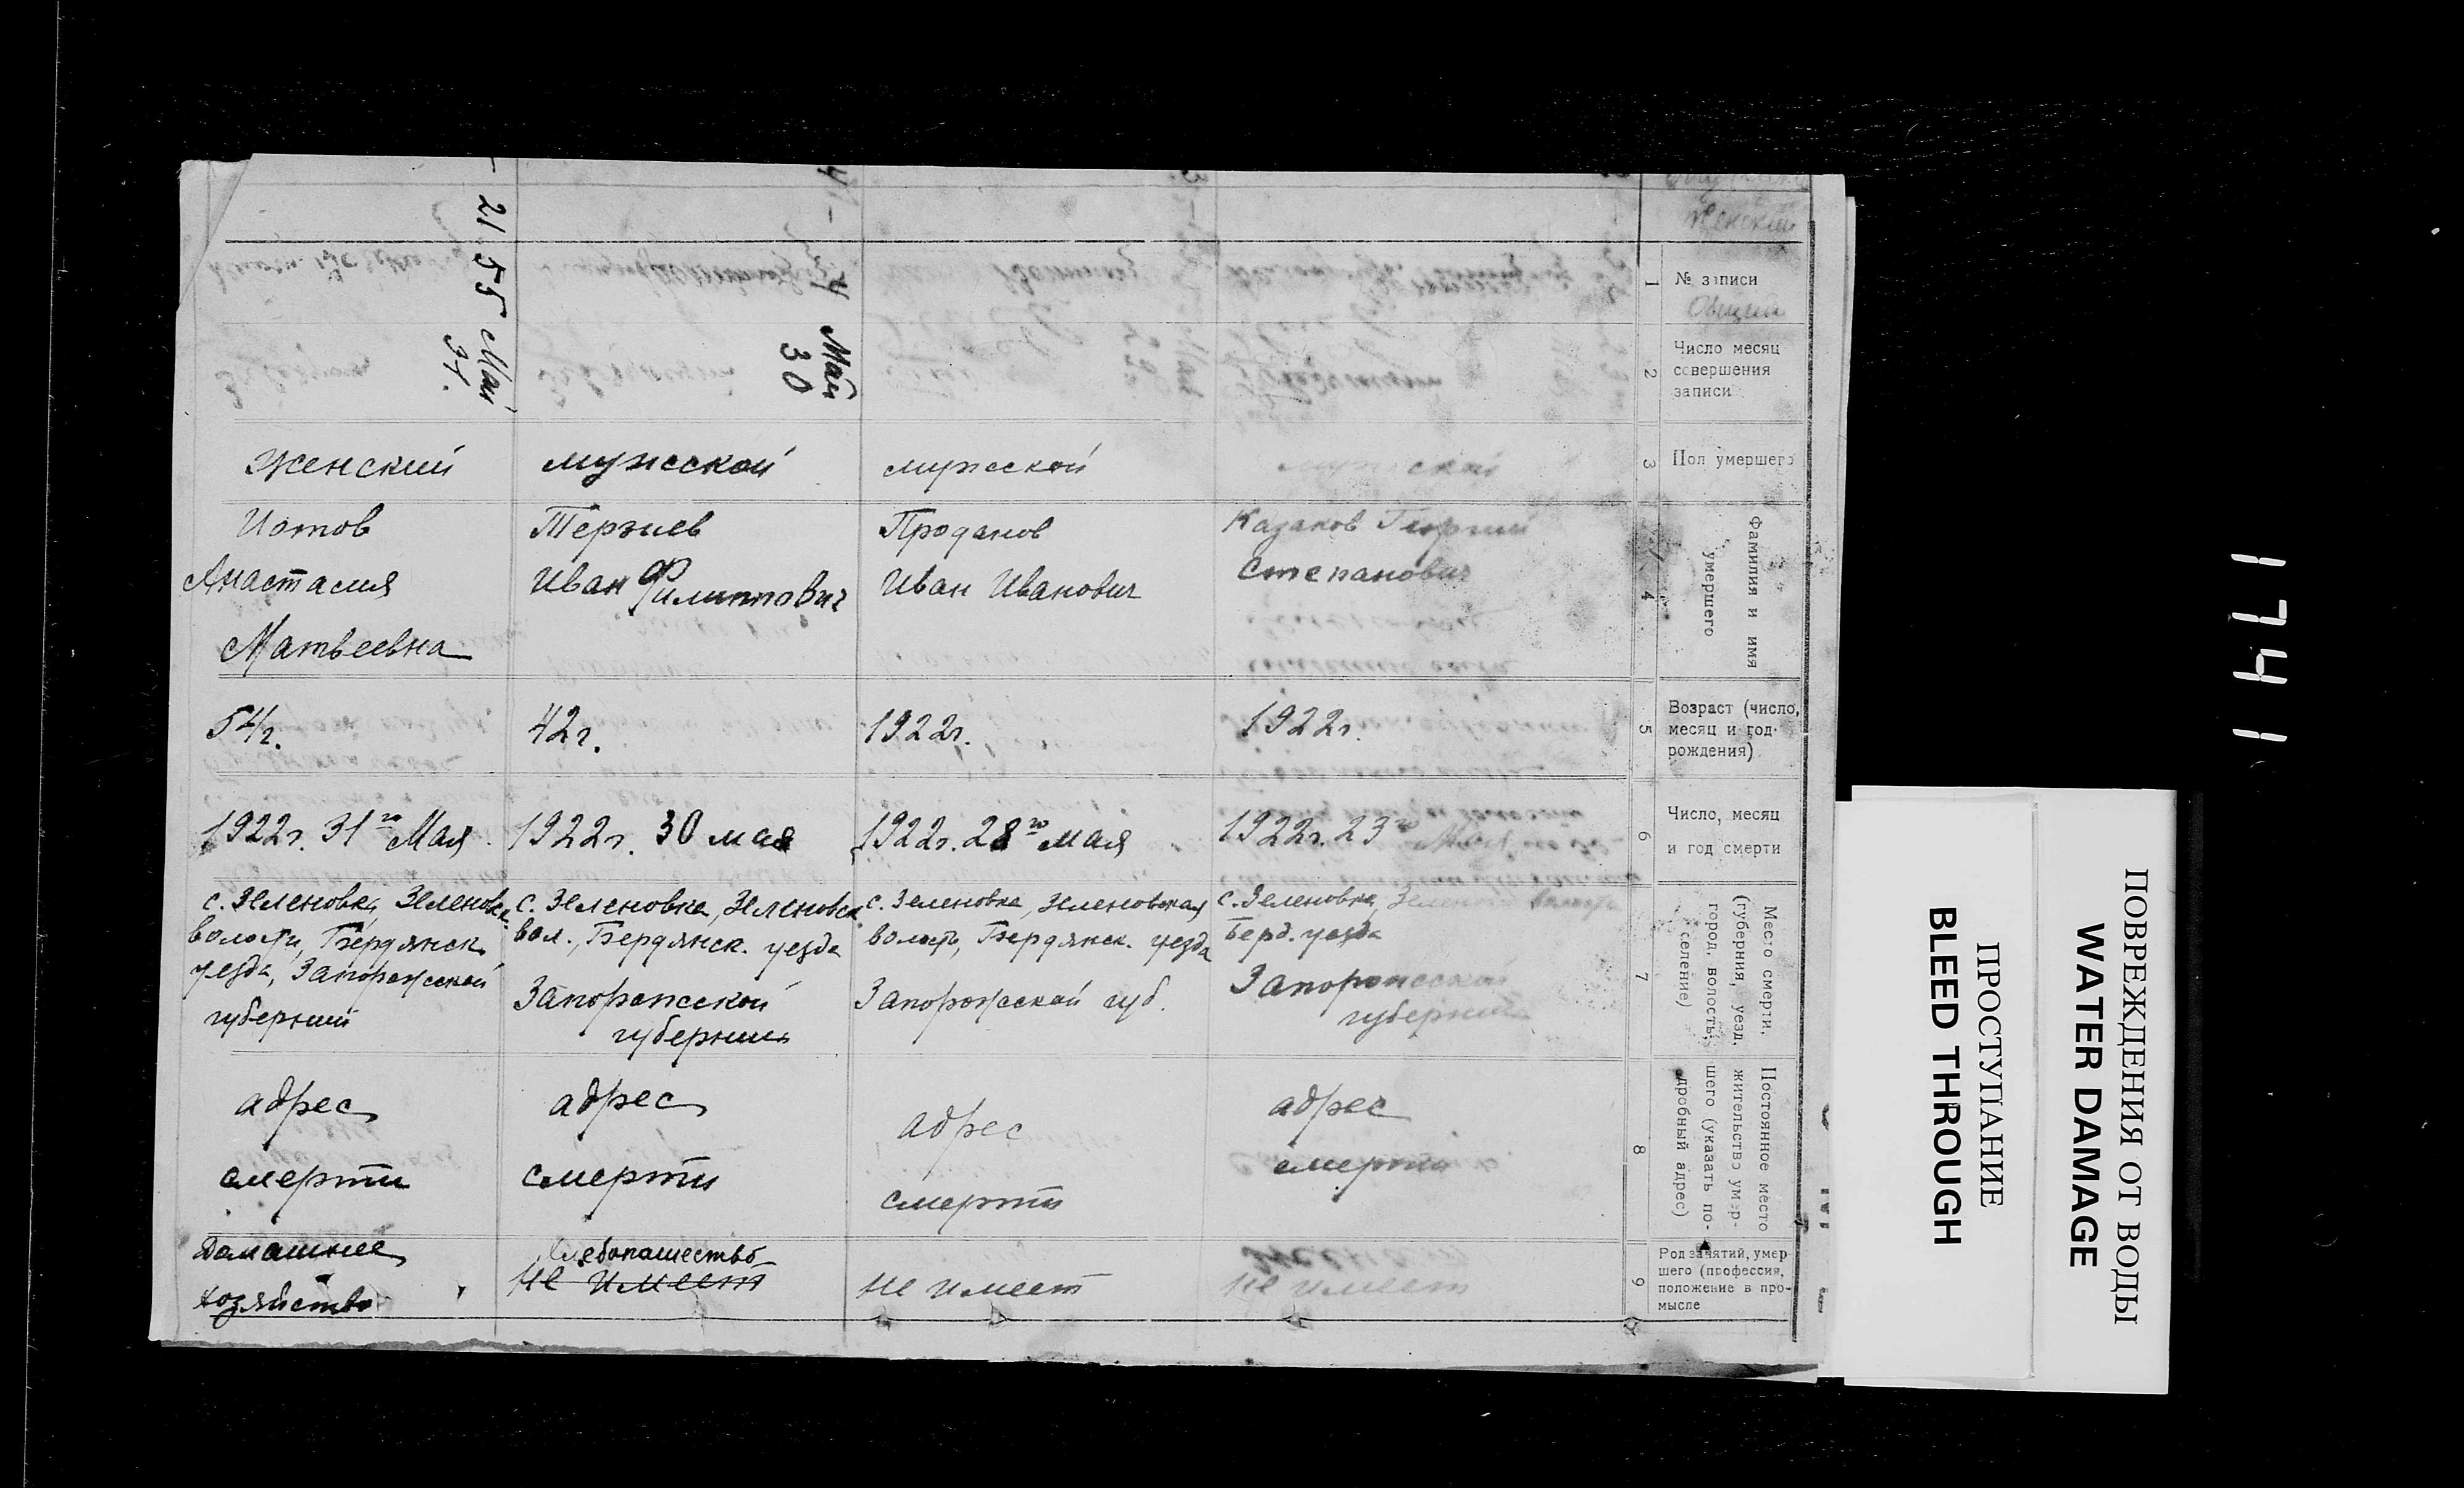 Женский
№ записи
Общий
Число месяц
совершения
записи
Пол умершего
Фамилия и имя
умершего
Возраст (число,
месяц и год
рождения)
Число, месяц
и год смерти
Место смерти,
(губерния, уезд,
город, волость,
селение)
Постоянное место
жительство умер-
шего (указать по-
дробный адрес)
Род занятий, умер
шего (профессия,
положение в про-
мысле
1
2
3
4
5
6
7
8
9
мужской
Казаков Георгий
Степанович
1922г.
1922г. 23го Мая
с. Зеленовка,
Берд. уезда
Запорожской
губернии
адрес
смерти
не имеет
мужской
Проданов
Иван Иванович
1922г.
1922г. 28го мая
с. Зеленовка, Зеленовская
волость, Бердянск. уезда
Запорожской губ.
адрес
смерти
не имеет
Май
30
мужской
Терзиев
Иван Филиппович
42г.
1922г. 30 мая
с. Зеленовка, Зеленовск
вол., Бердянск. уезда
Запорожской
губернии
адрес
смерти
Хлебопашество
не имеет
21 55 Мая
31.
Женский
Иотов
Анастасия
Матвеевна
54г.
1922г. 31го Мая
с. Зеленовка, Зеленовск.
волости, Бердянск.
уезда, Запорожской
губернии
адрес
смерти
Домашнее
хозяйство
1741
ПОВРЕЖДЕНИЯ ОТ ВОДЫ
WATER DAMAGE
ПРОСТУПАНИЕ
BLEED THROUGH